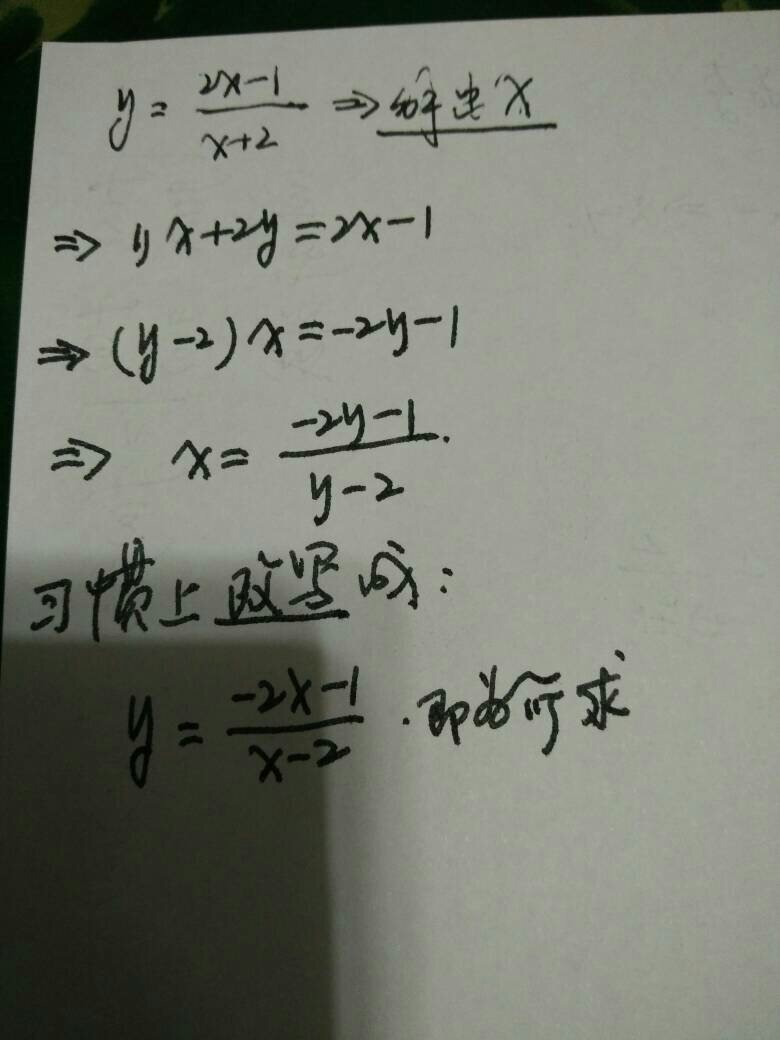 y = \frac{2x-1}{x+2} ⇒ 解出x
⇒ yx+2y=2x-1
⇒ (y-2)x=-2y-1
⇒ x= \frac{-2y-1}{y-2}.
习惯上改写成:
y = \frac{-2x-1}{x-2}.即为所求